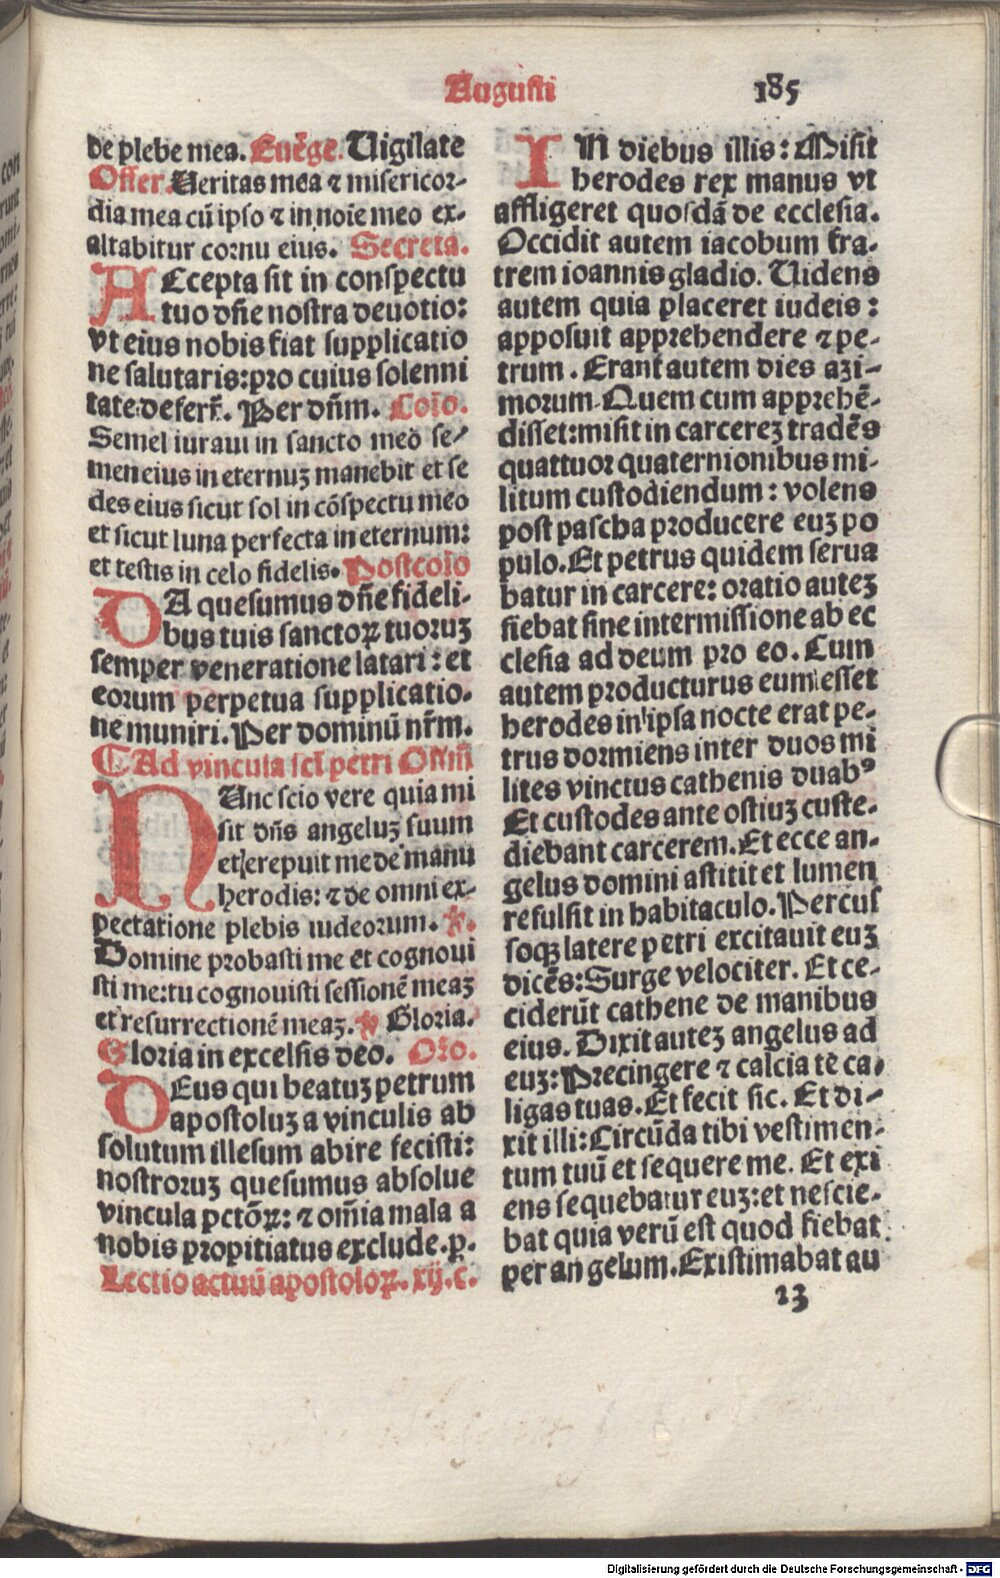 Augusti 185
de plebe mea. Euẽge. Uigilate
Offer. Ueritas mea ⁊ misericor-
dia mea cũ ipso ⁊ in noĩe meo ex-
altabitur cornu eius. Secreta.
ACcepta sit in conspectu
tuo dñe nostra deuotio:
vt eius nobis fiat supplicatio
ne salutaris: pro cuius solenni
tate defert̃. Per dñm. Coĩo.
Semel iuraui in sancto meo se/
men eius in eternuꝫ manebit et se
des eius sicut sol in cõspectu meo
et sicut luna perfecta in eternum:
et testis in celo fidelis. Postcoĩo
DA quesumus dñe fideli-
bus tuis sanctoꝝ tuoruꝫ
semper veneratione latari: et
eorum perpetua supplicatio-
ne muniri. Per dominũ nr̃m.
¶ Ad vincula scĩ petri Offm̃
NUnc scio vere quia mi
sit dñs angeluꝫ suum
et erepuit me de manu
herodis: ⁊ de omni ex-
pectatione plebis iudeorum. ps.
Domine probasti me et cognoui
sti me: tu cognouisti sessionẽ meaꝫ
et resurrectionẽ meaꝫ. ps Gloria.
Gloria in excelsis deo. Oro.
DEus qui beatuꝫ petrum
apostoluꝫ a vinculis ab
solutum illesum abire fecisti:
nostroruꝫ quesumus absolue
vincula pctõꝝ: ⁊ om̃ia mala a
nobis propitiatus exclude. p.
Lectio actuũ apostoloꝝ. xij. c.
IN diebus illis: Misit
herodes rex manus vt
affligeret quosdã de ecclesia.
Occidit autem iacobum fra-
trem ioannis gladio. Uidens
autem quia placeret iudeis:
apposuit apprehendere ⁊ pe-
trum. Erant autem dies azi-
morum. Quem cum apprehẽ-
disset: misit in carcereꝫ tradẽs
quattuor quaternionibus mi-
litum custodiendum: volens
post pascha producere euꝫ po
pulo. Et petrus quidem serua
batur in carcere: oratio auteꝫ
fiebat sine intermissione ab ec
clesia ad deum pro eo. Cum
autem producturus eum esset
herodes in ipsa nocte erat pe-
trus dormiens inter duos mi
lites vinctus cathenis duabꝰ
Et custodes ante ostiuꝫ custe-
diebant carcerem. Et ecce an-
gelus domini astitit et lumen
refulsit in habitaculo. Percus
soqꝫ latere petri excitauit euꝫ
dicẽs: Surge velociter. Et ce-
ciderũt cathene de manibus
eius. Dixit auteꝫ angelus ad
euꝫ: Precingere ⁊ calcia te ca-
ligas tuas. Et fecit sic. Et di-
xit illi: Circũda tibi vestimen-
tum tuũ et sequere me. Et exi
ens sequebatur euꝫ: et nescie-
bat quia verũ est quod fiebat
per angelum. Existimabat au
23
Digitalisierung gefördert durch die Deutsche Forschungsgemeinschaft - DFG